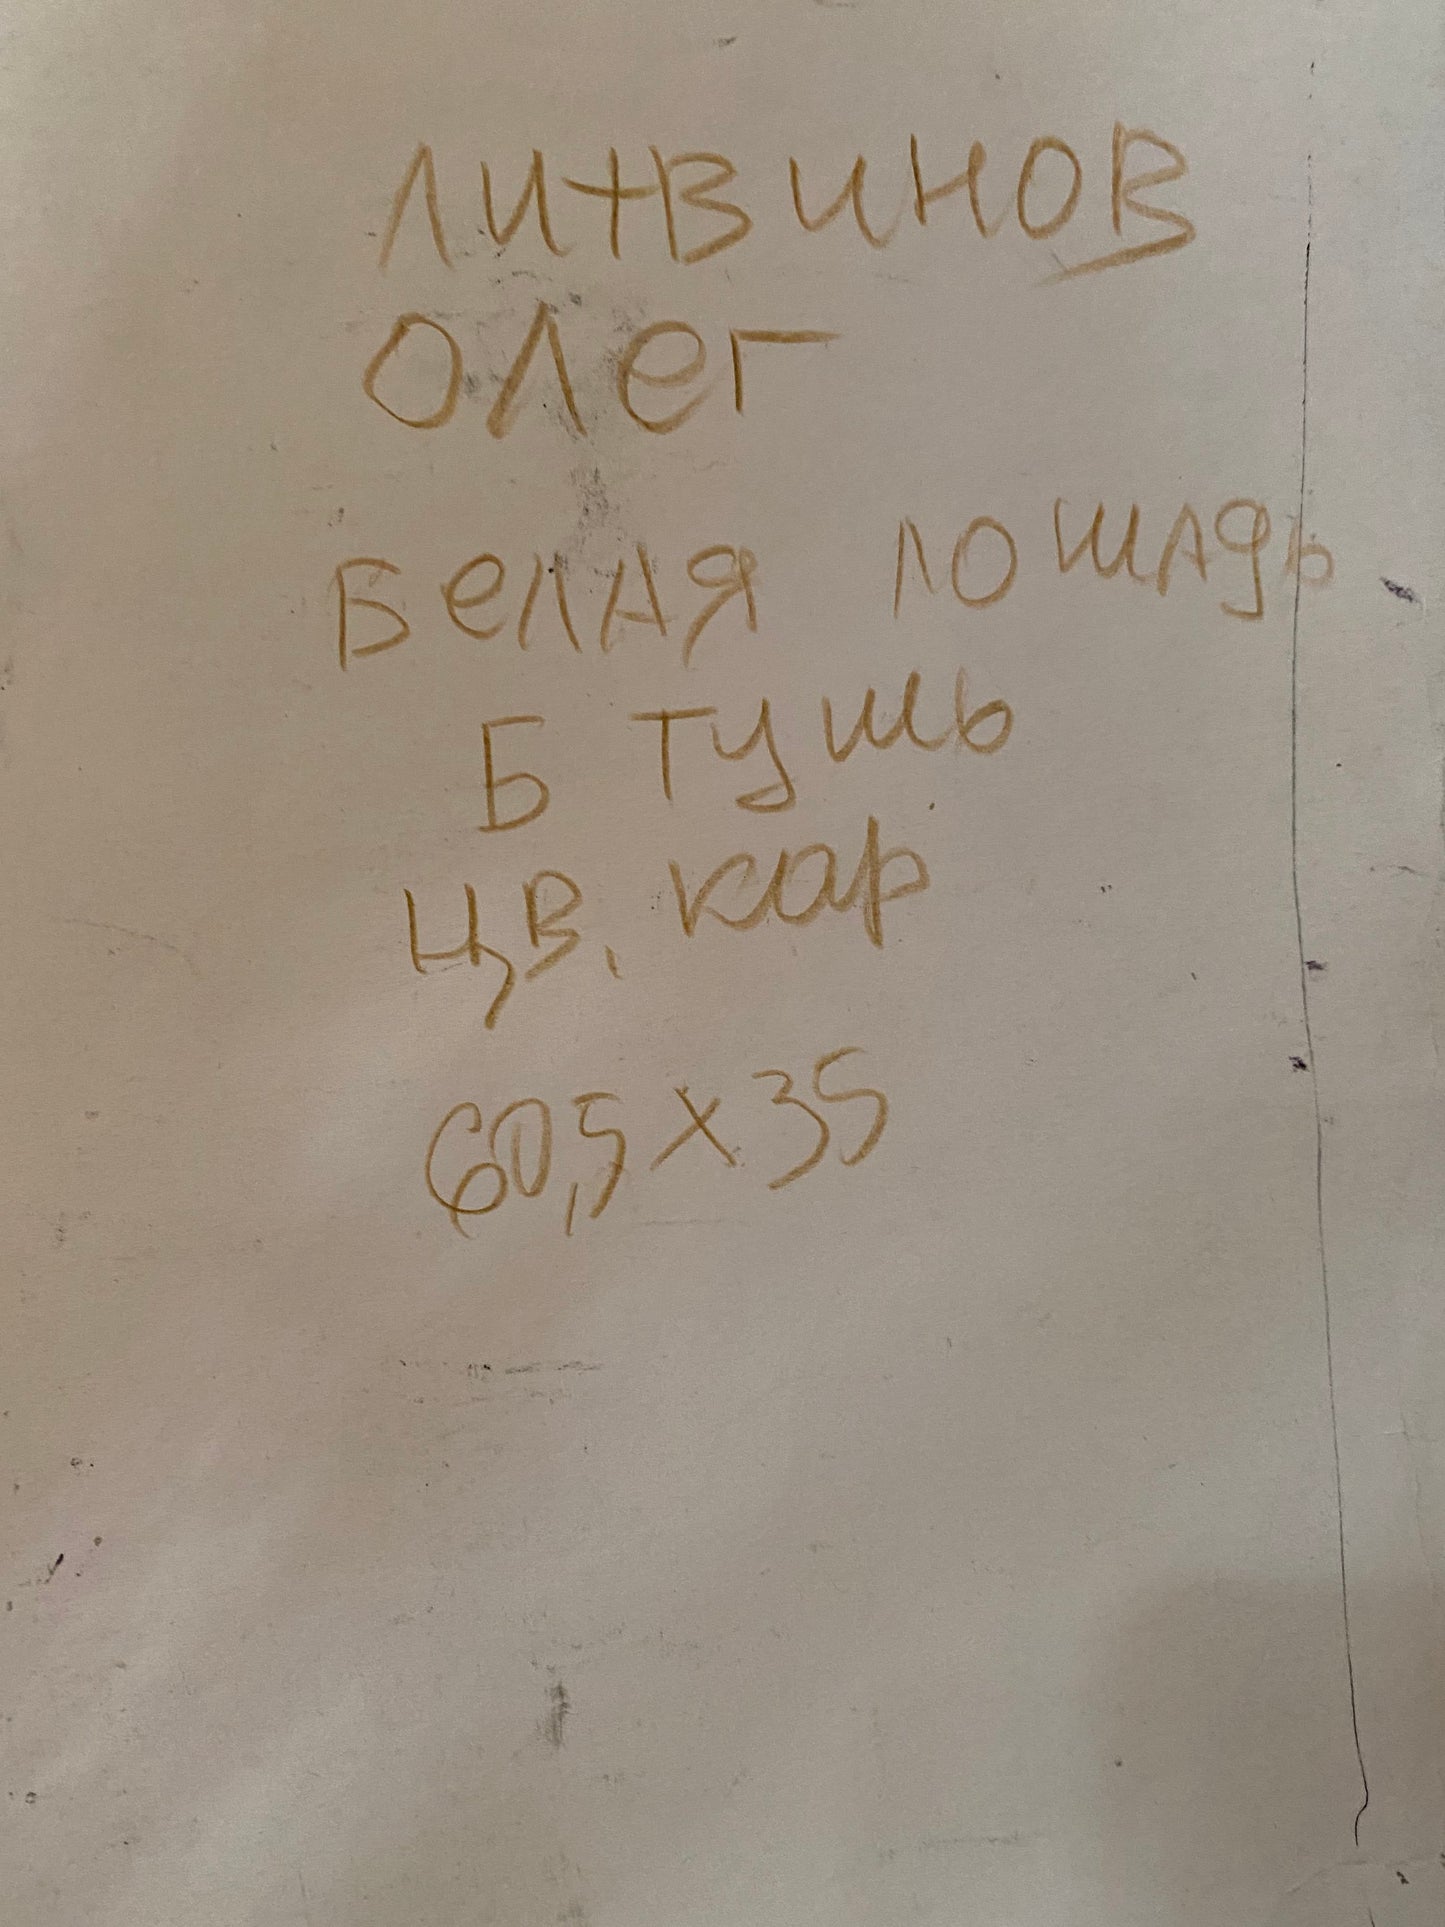 ЛИТВИНОВ
ОЛЕГ
БЕЛАЯ ЛОШАДЬ
Б ТУШЬ
ЦВ. кар
60,5 х 35